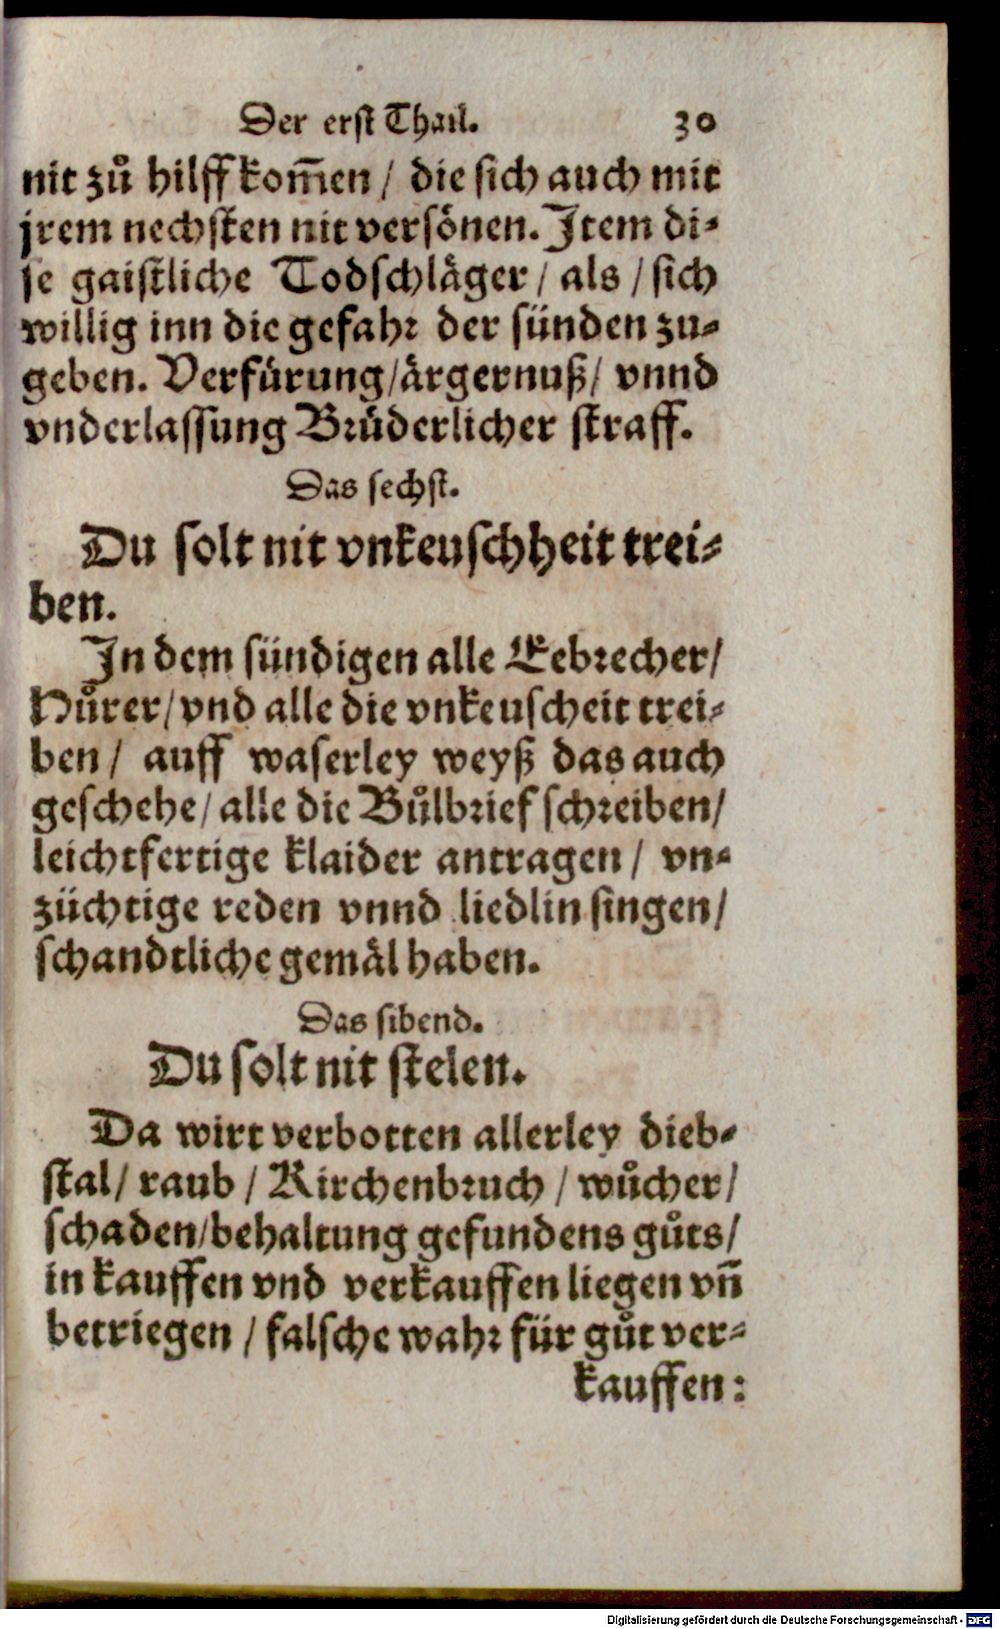 Der erst Thail. 30
nit zů hilff kom̃en / die sich auch mit
jrem nechsten nit versönen. Item di-
se gaistliche Todschläger / als / sich
willig inn die gefahr der sünden zu-
geben. Verfürung / ärgernuß / vnnd
vnderlassung Brůderlicher straff.
Das sechst.
Du solt nit vnkeuschheit trei-
ben.
In dem sündigen alle Eebrecher /
Hůrer / vnd alle die vnkeuscheit trei-
ben / auff waserley weyß das auch
geschehe / alle die Bůlbrief schreiben /
leichtfertige klaider antragen / vn-
züchtige reden vnnd liedlin singen /
schandtliche gemäl haben.
Das sibend.
Du solt nit stelen.
Da wirt verbotten allerley dieb-
stal / raub / Kirchenbruch / wůcher /
schaden / behaltung gefundens gůts /
in kauffen vnd verkauffen liegen vñ
betriegen / falsche wahr für gůt ver-
kauffen:
Digitalisierung gefördert durch die Deutsche Forschungsgemeinschaft - DFG